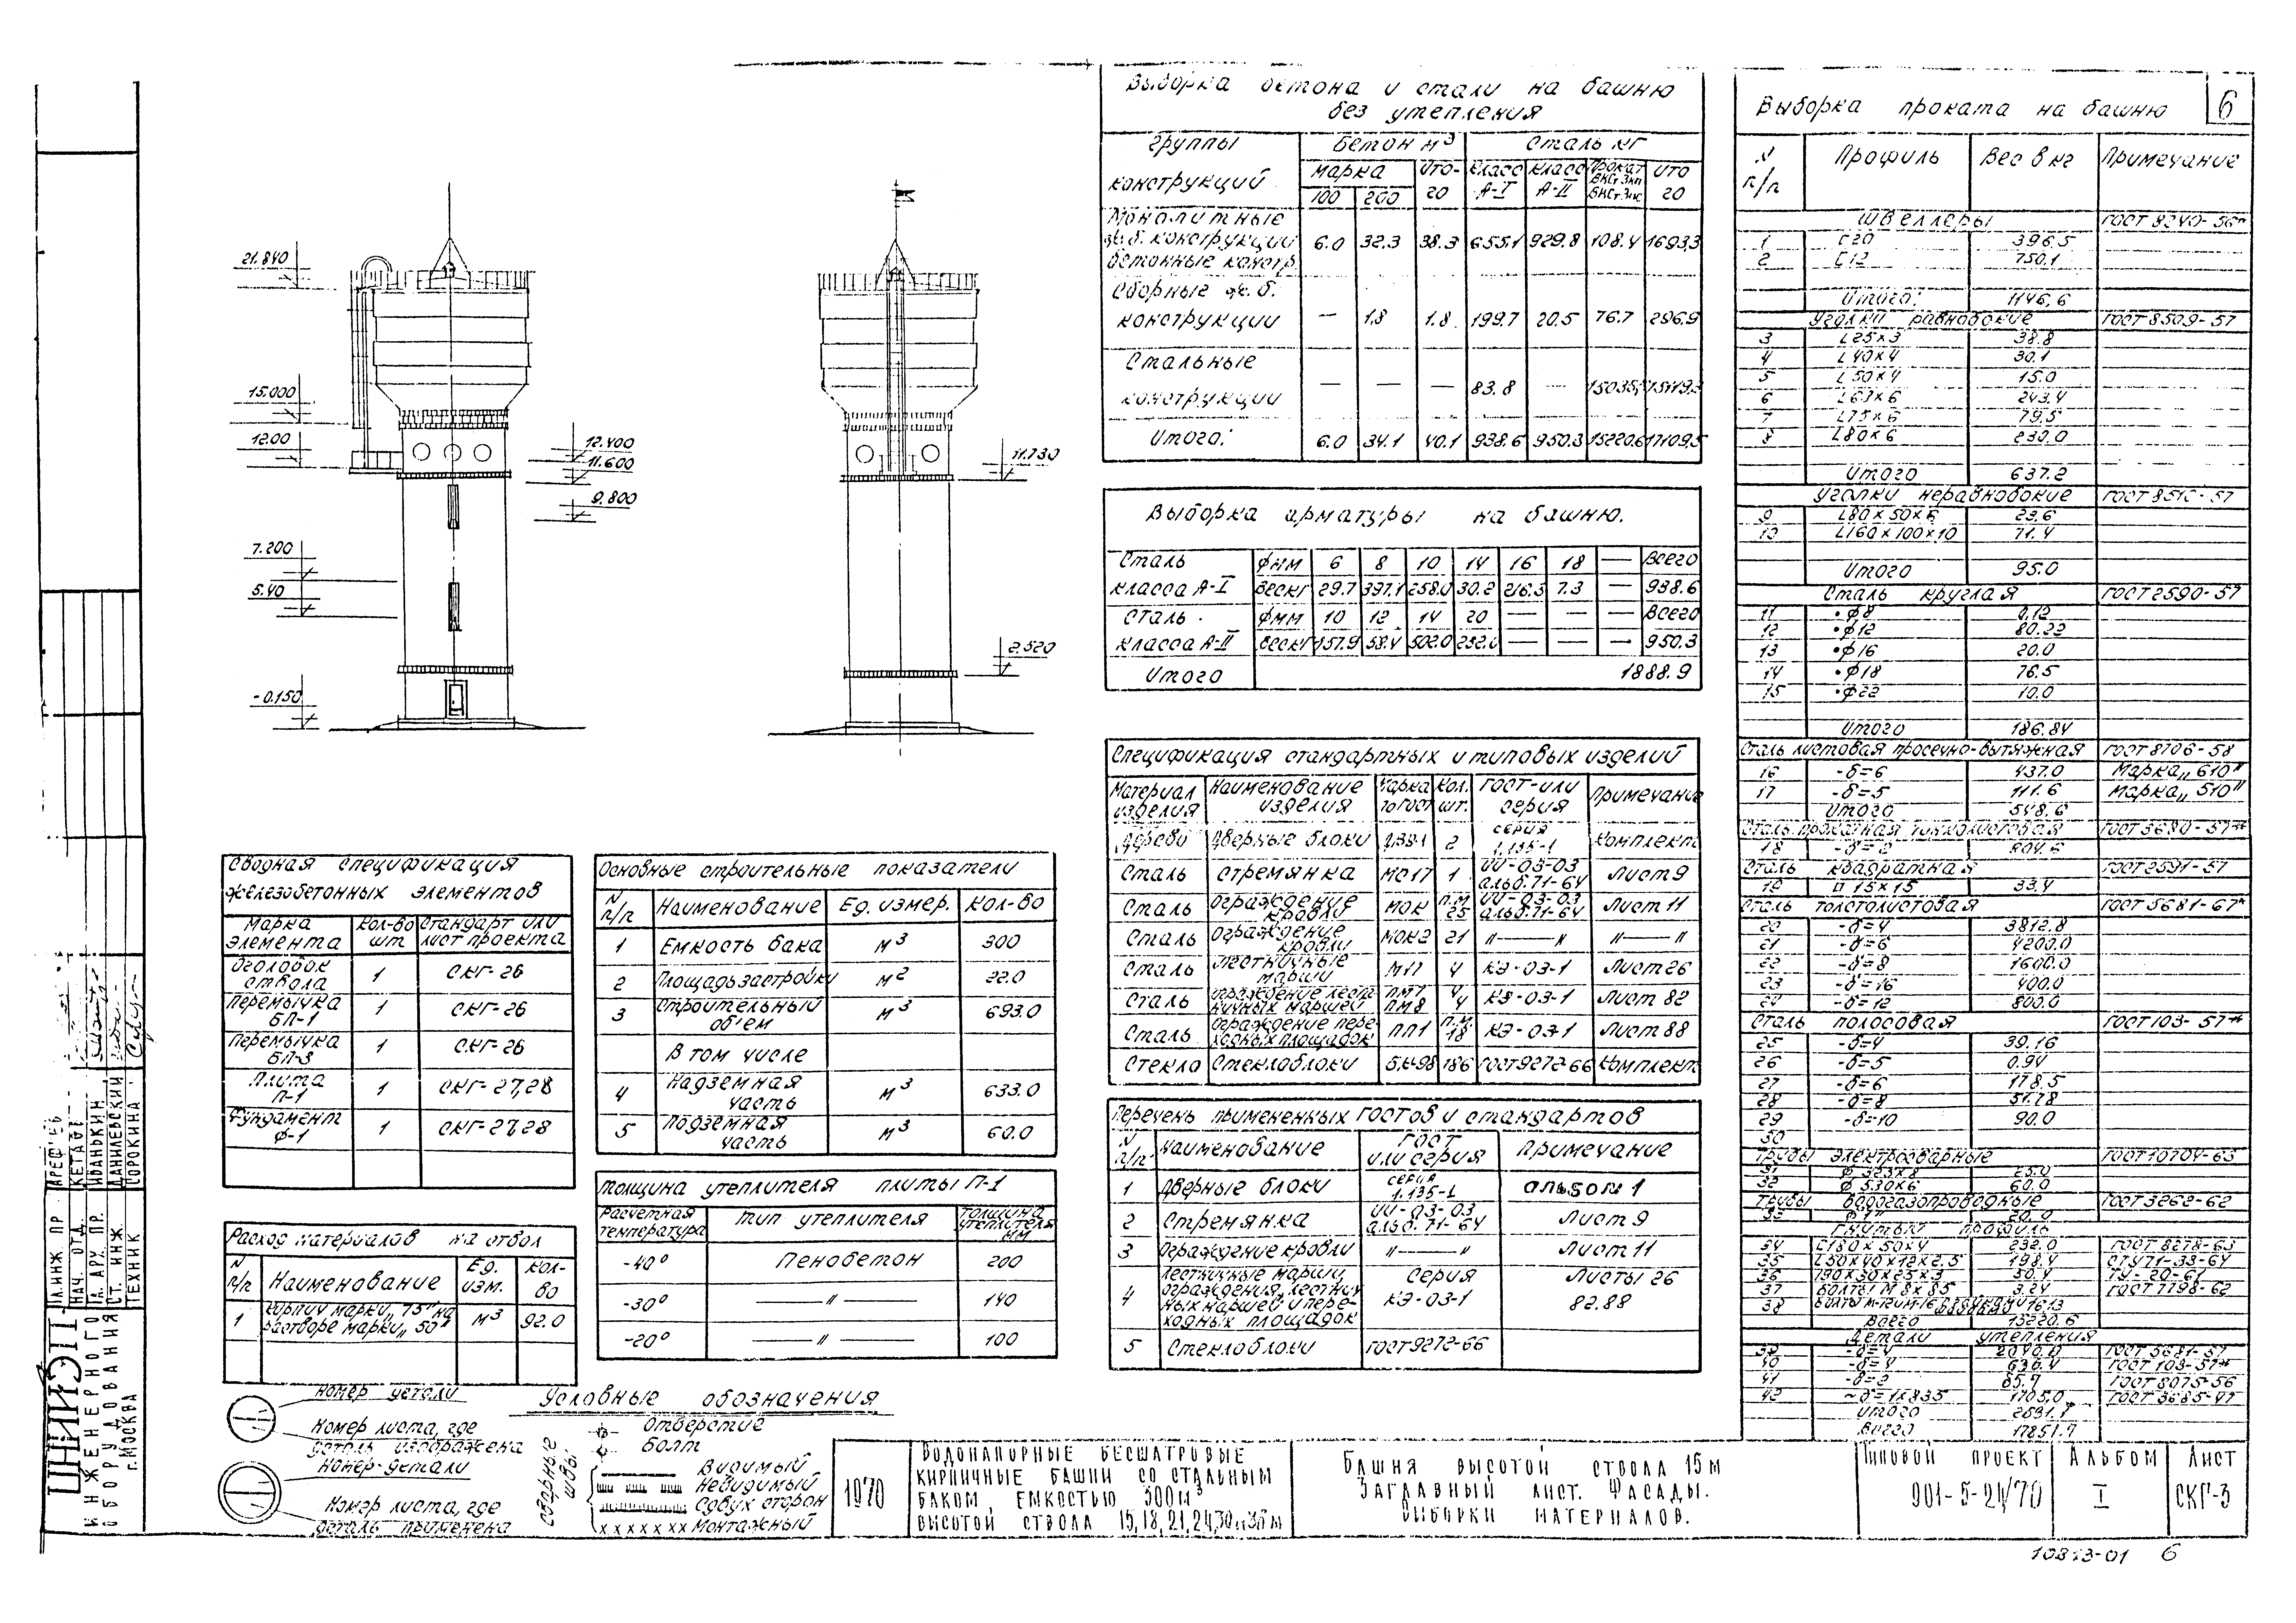 21.840
15.000
12.00
7.200
5.40
-0.150
12.400
11.600
9.800
11.730
2.520
Выборка бетона и стали на башню
без утепления
Группы конструкций | Бетон м³ | Сталь кг
марка | Ито- | Класс | Класс | Прокат | Ито
100 | 200 | го | А-I | А-II | го
Монолитные
ж.б. конструкции 6.0 32.3 38.3 655.1 929.8 108.4 1693.3
бетонные констр.
Сборные ж.б.
конструкции — 1.8 1.8 199.7 20.5 76.7 296.9
Стальные
конструкции — — — 83.8 —
Итого: 6.0 34.1 40.1 938.6 950.3 15220.6 17109.5
Выборка арматуры на башню.
Сталь Фмм 6 8 10 14 16 18 — Всего
класса А-I Вес кг 29.7 397.1 258.0 30.2 216.3 7.3 — 938.6
Сталь Фмм 10 12 14 20 — — — Всего
класса А-II Вес кг 157.9 58.4 502.0 232.0 — — — 950.3
Итого 1888.9
Спецификация стандартных и типовых изделий
Материал изделия | Наименование изделия | Марка по ГОСТ | Кол. шт. | ГОСТ или серия | Примечание
Дерево Дверные блоки 2 серия 1.135-1 Комплект
Сталь Стремянка МС17 1 ИИ-03-03 альб. 71-64 Лист 9
Сталь Ограждение кровли МОК п.м 25 ИИ-03-03 альб. 71-64 Лист 11
Сталь Ограждение кровли МОК2 21 〃——〃 〃——〃
Сталь Лестничные марши М17 4 КЭ-03-1 Лист 26
Сталь Ограждение лестничных маршей ПМ7 ПМ8 4 4 КЭ-03-1 Лист 82
Сталь Ограждение переходных площадок ПП1 п.м. 18 КЭ-03-1 Лист 88
Стекло Стеклоблоки БК-98 186 ГОСТ 9272-66 Комплект
Перечень примененных гостов и стандартов
N п/п | Наименование | ГОСТ или серия | Примечание
1 Дверные блоки серия 1.135-1 альбом 1
2 Стремянка ИИ-03-03 альб. 71-64 Лист 9
3 Ограждение кровли 〃——〃 Лист 11
4 Лестничные марши, ограждения лестничных маршей и переходных площадок Серия КЭ-03-1 Листы 26 82.88
5 Стеклоблоки ГОСТ 9272-66
Выборка проката на башню
6
N п/п | Профиль | Вес в кг | Примечание
Швеллеры ГОСТ 8240-56*
1 С20 396.5
2 С12 750.1
Итого: 1146.6
Уголки равнобокие ГОСТ 8509-57
3 L25×3 38.8
4 L40×4 30.1
5 L50×4 15.0
6 L63×6 243.4
7 L75×6 79.5
8 L80×6 230.0
Итого 637.2
Уголки неравнобокие ГОСТ 8510-57
9 L80×50×6 23.6
10 L160×100×10 71.4
Итого 95.0
Сталь круглая ГОСТ 2590-57
11 •ф8 0.12
12 •ф12 80.22
13 •ф16 20.0
14 •ф18 76.5
15 •ф22 10.0
Итого 186.84
Сталь листовая просечно-вытяжная ГОСТ 8706-58
16 -δ=6 437.0 Марка „610"
17 -δ=5 111.6 Марка „510"
Итого 548.6
Сталь прокатная тонколистовая ГОСТ 3680-57*
18 -δ=2
Сталь квадратная ГОСТ 2591-57
19 □ 15×15 33.4
Сталь толстолистовая ГОСТ 5681-67*
20 -δ=4 3812.8
21 -δ=6 4200.0
22 -δ=8 1600.0
23 -δ=16 400.0
24 -δ=12 800.0
Сталь полосовая ГОСТ 103-57*
25 -δ=4 39.16
26 -δ=5 0.94
27 -δ=6 178.5
28 -δ=8 51.78
29 -δ=10 90.0
30
Трубы электросварные ГОСТ 10704-63
31 ф 323×8 25.0
32 ф 530×6 60.0
Трубы водогазопроводные ГОСТ 3262-62
33
Гнутый профиль
34 С180×50×4 232.0 ГОСТ 8278-63
35 С50×40×12×2.5 198.4
36 190×30×25×3 50.4
37 Болты М8×85 3.24 ГОСТ 7798-62
38
Всего 15220.6
Детали утепления
39 -δ=4 2040.0 ГОСТ 5681-57
40 -δ=4 636.4 ГОСТ 103-57*
41 -δ=2 ГОСТ 8075-56
42
Итого
Всего 17851.7
Сводная спецификация
железобетонных элементов
Марка элемента | Кол-во шт | Стандарт или лист проекта
Оголовок ствола 1 СКГ-26
Перемычка БП-1 1 СКГ-26
Перемычка БП-3 1 СКГ-26
Плита П-1 1 СКГ-27,28
Фундамент Ф-1 1 СКГ-27,28
Основные строительные показатели
N п/п | Наименование | Ед. измер. | Кол-во
1 Емкость бака м³ 300
2 Площадь застройки м² 22.0
3 Строительный объем м³ 693.0
В том числе
4 Надземная часть м³ 633.0
5 Подземная часть м³ 60.0
Расход материалов на ствол
N п/п | Наименование | Ед. изм. | Кол-во
1 Кирпич марки „75" на растворе марки „50" м³ 92.0
Толщина утеплителя плиты П-1
Расчетная температура | Тип утеплителя | Толщина утеплителя мм
-40° Пенобетон 200
-30° ——〃—— 140
-20° ——〃—— 100
Номер детали
Номер листа, где
деталь изображена
Номер детали
Номер листа, где
деталь применена
Условные обозначения
Отверстие
Болт
Сварные швы
Видимый
Невидимый
С двух сторон
Монтажный
1970
Водонапорные бесшатровые
кирпичные башни со стальным
баком, емкостью 300м³
высотой ствола 15,18,21,24,30 и 36 м
Башня высотой ствола 15м
Заглавный лист. Фасады.
Выборки материалов.
Типовой проект
901-5-21/70
Альбом
I
Лист
СКГ-3
6
ЦНИИЭП
инженерного
оборудования
г. Москва
Гл. инж. пр.
Нач. отд.
Гл. арх. пр.
Ст. инж.
Техник
Иванькин
Данилевский
Сорокина